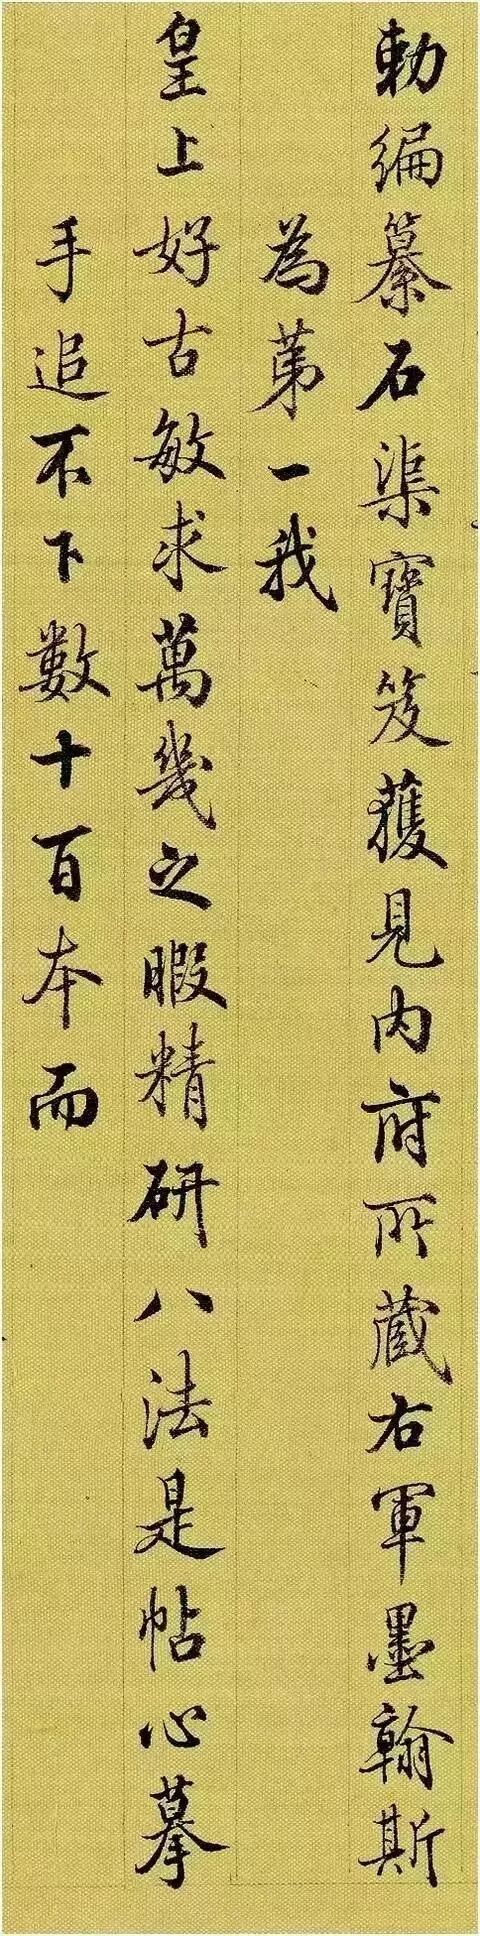 勅編纂石渠寶笈獲見内府所蔵右軍墨翰斯
為苐一我
皇上好古敏求萬幾之暇精研八法是帖心摹
手追不下數十百本而